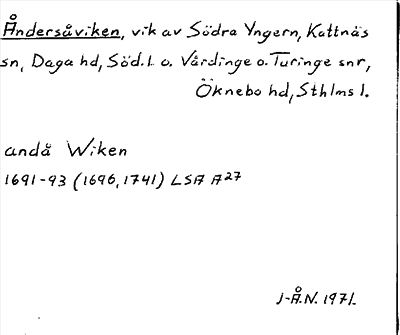 Åndersåviken, vik av Södra Yngern, Kattnäs
sn, Daga hd, Söd. l. o. Vårdinge o. Turinge snr,
Öknebo hd, Sthlms l.
andå Wiken
1691-93 (1696, 1741) LSA A27
J-Å.N. 1971.